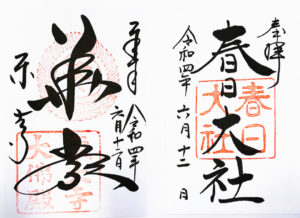 奉拝
春日大社
春日
大社
令和四年 六月十二日
奉拝
令和四年
六月十二日
華厳
東大寺
大佛殿